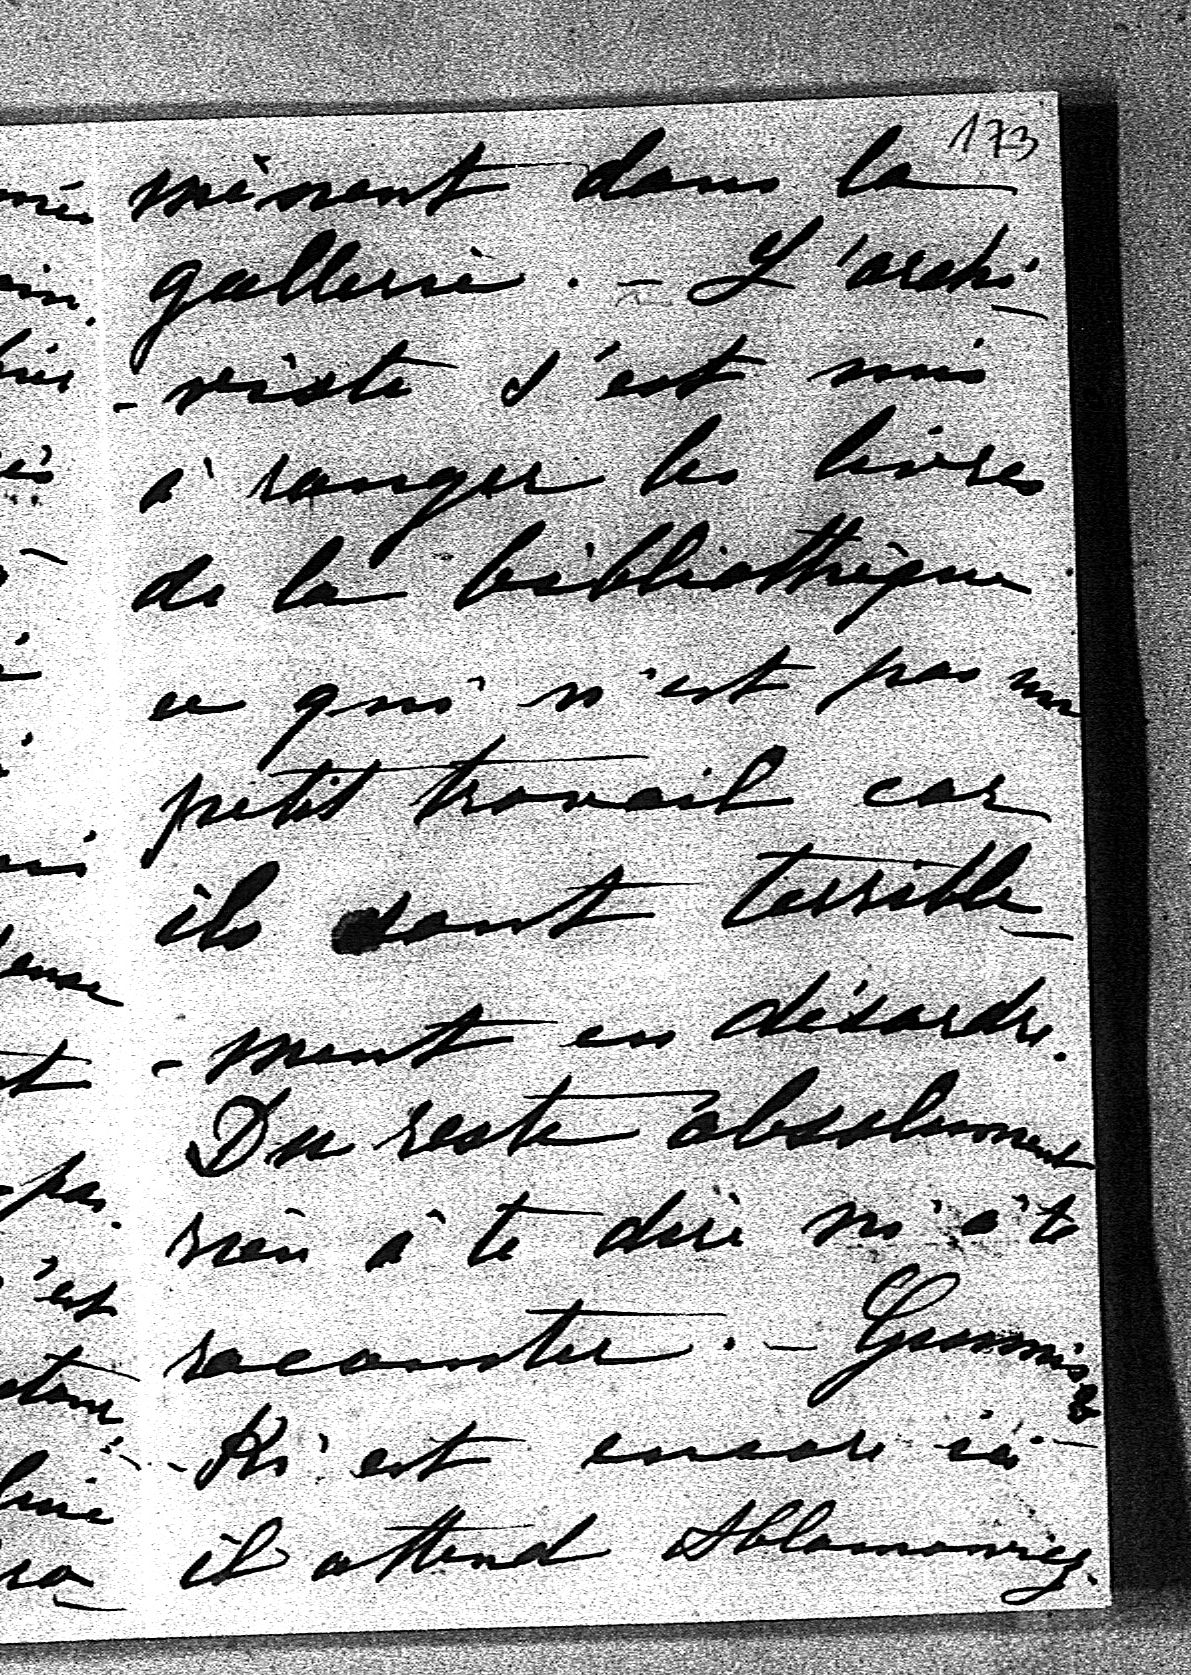 173
mènent dans la
gallerie. – L'archi-
-viste s'est mis
à ranger les livres
de la bibliothèque
ce qui n'est pas un
petit travail car
ils sont terrible-
-ment en désordre.
Du reste absolument
rien à te dire ni à te
raconter. –
-Ki est encore ici –
il attend
pas
'est